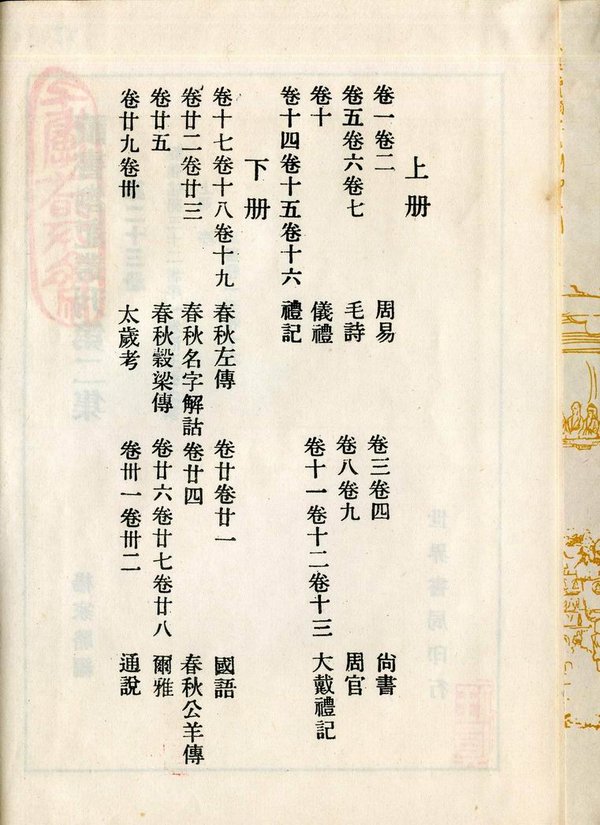 上册
卷一卷二 周易 卷三卷四 尙書
卷五卷六卷七 毛詩 卷八卷九 周官
卷十 儀禮 卷十一卷十二卷十三 大戴禮記
卷十四卷十五卷十六 禮記
下册
卷十七卷十八卷十九 春秋左傳 卷廿卷廿一 國語
卷廿二卷廿三 春秋名字解詁 卷廿四 春秋公羊傳
卷廿五 春秋穀梁傳 卷廿六卷廿七卷廿八 爾雅
卷廿九卷卅 太歲考 卷卅一卷卅二 通說